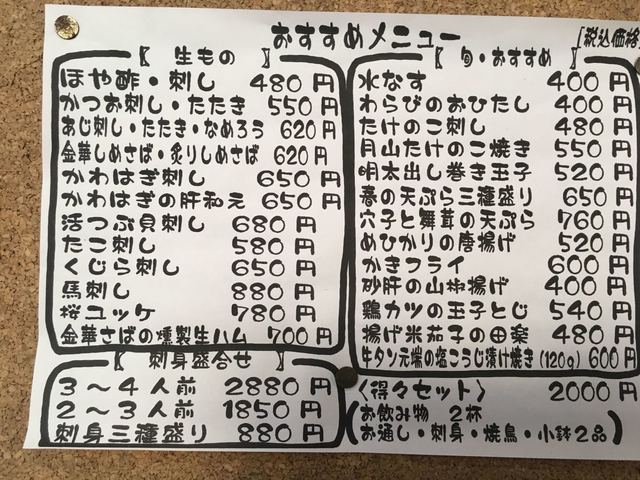 おすすめメニュー
[税込価格
【 生もの 】
ほや酢・刺し 480円
かつお刺し・たたき 550円
あじ刺し・たたき・なめろう 620円
金華しめさば・炙りしめさば 620円
かわはぎ刺し 650円
かわはぎの肝和え 650円
活つぶ貝刺し 680円
たこ刺し 580円
くじら刺し 650円
馬刺し 880円
桜ユッケ 780円
金華さばの燻製生ハム 700円
【 刺身盛合せ 】
3～4人前 2880円
2～3人前 1850円
刺身三種盛り 880円
【 旬・おすすめ 】
水なす 400円
わらびのおひたし 400円
たけのこ刺し 480円
月山たけのこ焼き 550円
明太出し巻き玉子 520円
春の天ぷら三種盛り 650円
穴子と舞茸の天ぷら 760円
めひかりの唐揚げ 520円
かきフライ 600円
砂肝の山椒揚げ 400円
鶏カツの玉子とじ 540円
揚げ米茄子の田楽 480円
牛タン元端の塩こうじ漬け焼き(120g) 600円
〈得々セット〉 2000円
(お飲み物 2杯
お通し・刺身・焼鳥・小鉢2品)